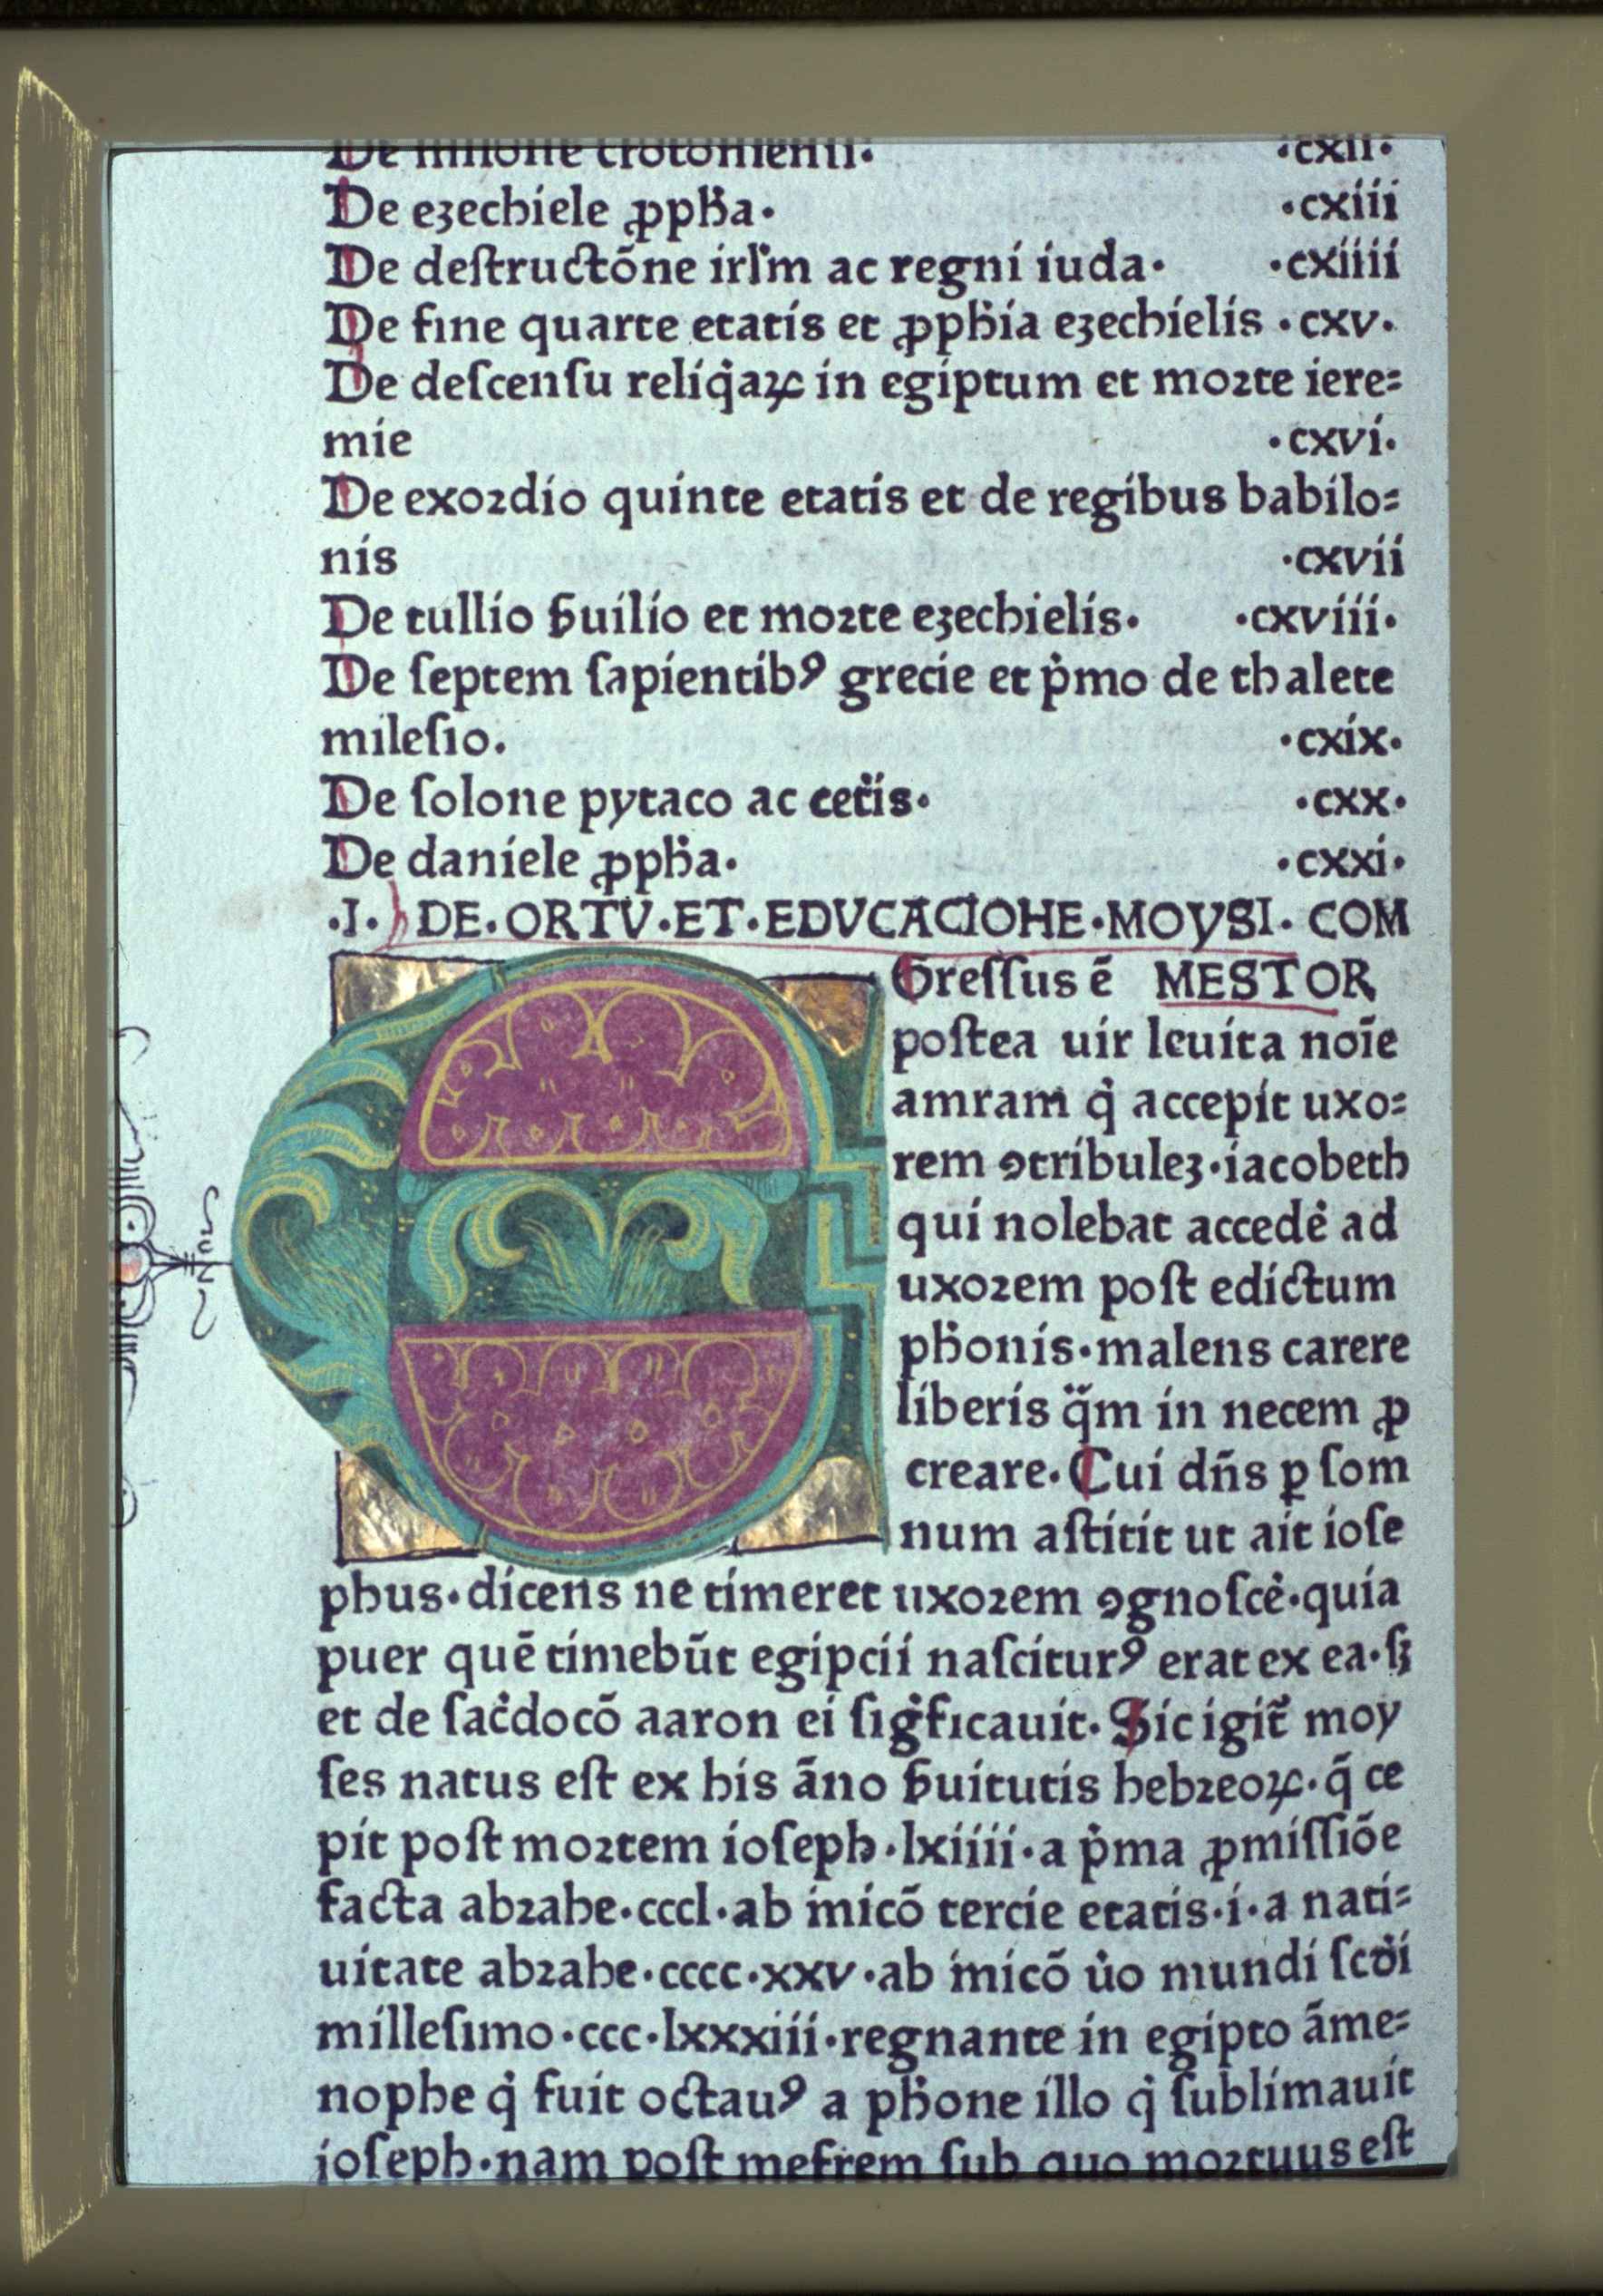 De milone crotoniensi· ·cxii·
De eʒechiele ꝓpħa· ·cxiii
De deſtructõne irłm ac regni iuda· ·cxiiii
De fine quarte etatis et ꝓpħia eʒechielis ·cxv·
De deſcenſu reliq̇aꝝ in egiptum et moꝛte iere=
mie ·cxvi·
De exoꝛdio quinte etatis et de regibus babilo=
nis ·cxvii
De tullio ẜuilio et moꝛte eʒechielis· ·cxviii·
De ſeptem ſapientibꝰ grecie et ṗmo de thalete
mileſio. ·cxix·
De ſolone pytaco ac cet̃is· ·cxx·
De daniele ꝓpħa· ·cxxi·
·I· DE·ORTV·ET·EDVCACIOHE·MOYSI· COM
EGreſſus ẽ MESTOR
poſtea uir leuita noĩe
amram q̇ accepit uxo=
rem ꝯtribuleʒ·iacobeth
qui nolebat accedė ad
uxoꝛem poſt edictum
pħonis·malens carere
liberis q̈̃m in necem ꝓ
creare. Cui dñs ꝑ ſom
num aſtitit ut ait ioſe
phus·dicens ne timeret uxoꝛem ꝯgnoſcė·quia
puer quẽ timebũt egipcii naſciturꝰ erat ex ea·ſꝫ
et de ſac̓docõ aaron ei ſig̓ficauit· Sic igit̃ moy
ſes natus eſt ex his ãno ẜuitutis hebꝛeoꝝ·q̃ ce
pit poſt moꝛtem ioſeph·lxiiii·a ṗma ꝓmiſſiõe
facta abꝛahe·cccl·ab inicõ tercie etatis·i·a nati=
uitate abꝛahe·cccc·xxv·ab inicõ u̇o mundi ſcd̓i
milleſimo·ccc·lxxxiii·regnante in egipto ãme=
nophe q̇ fuit octauꝰ a pħone illo q̇ ſublimauit
ioſeph·nam poſt mefrem ſub quo moꝛtuus eſt